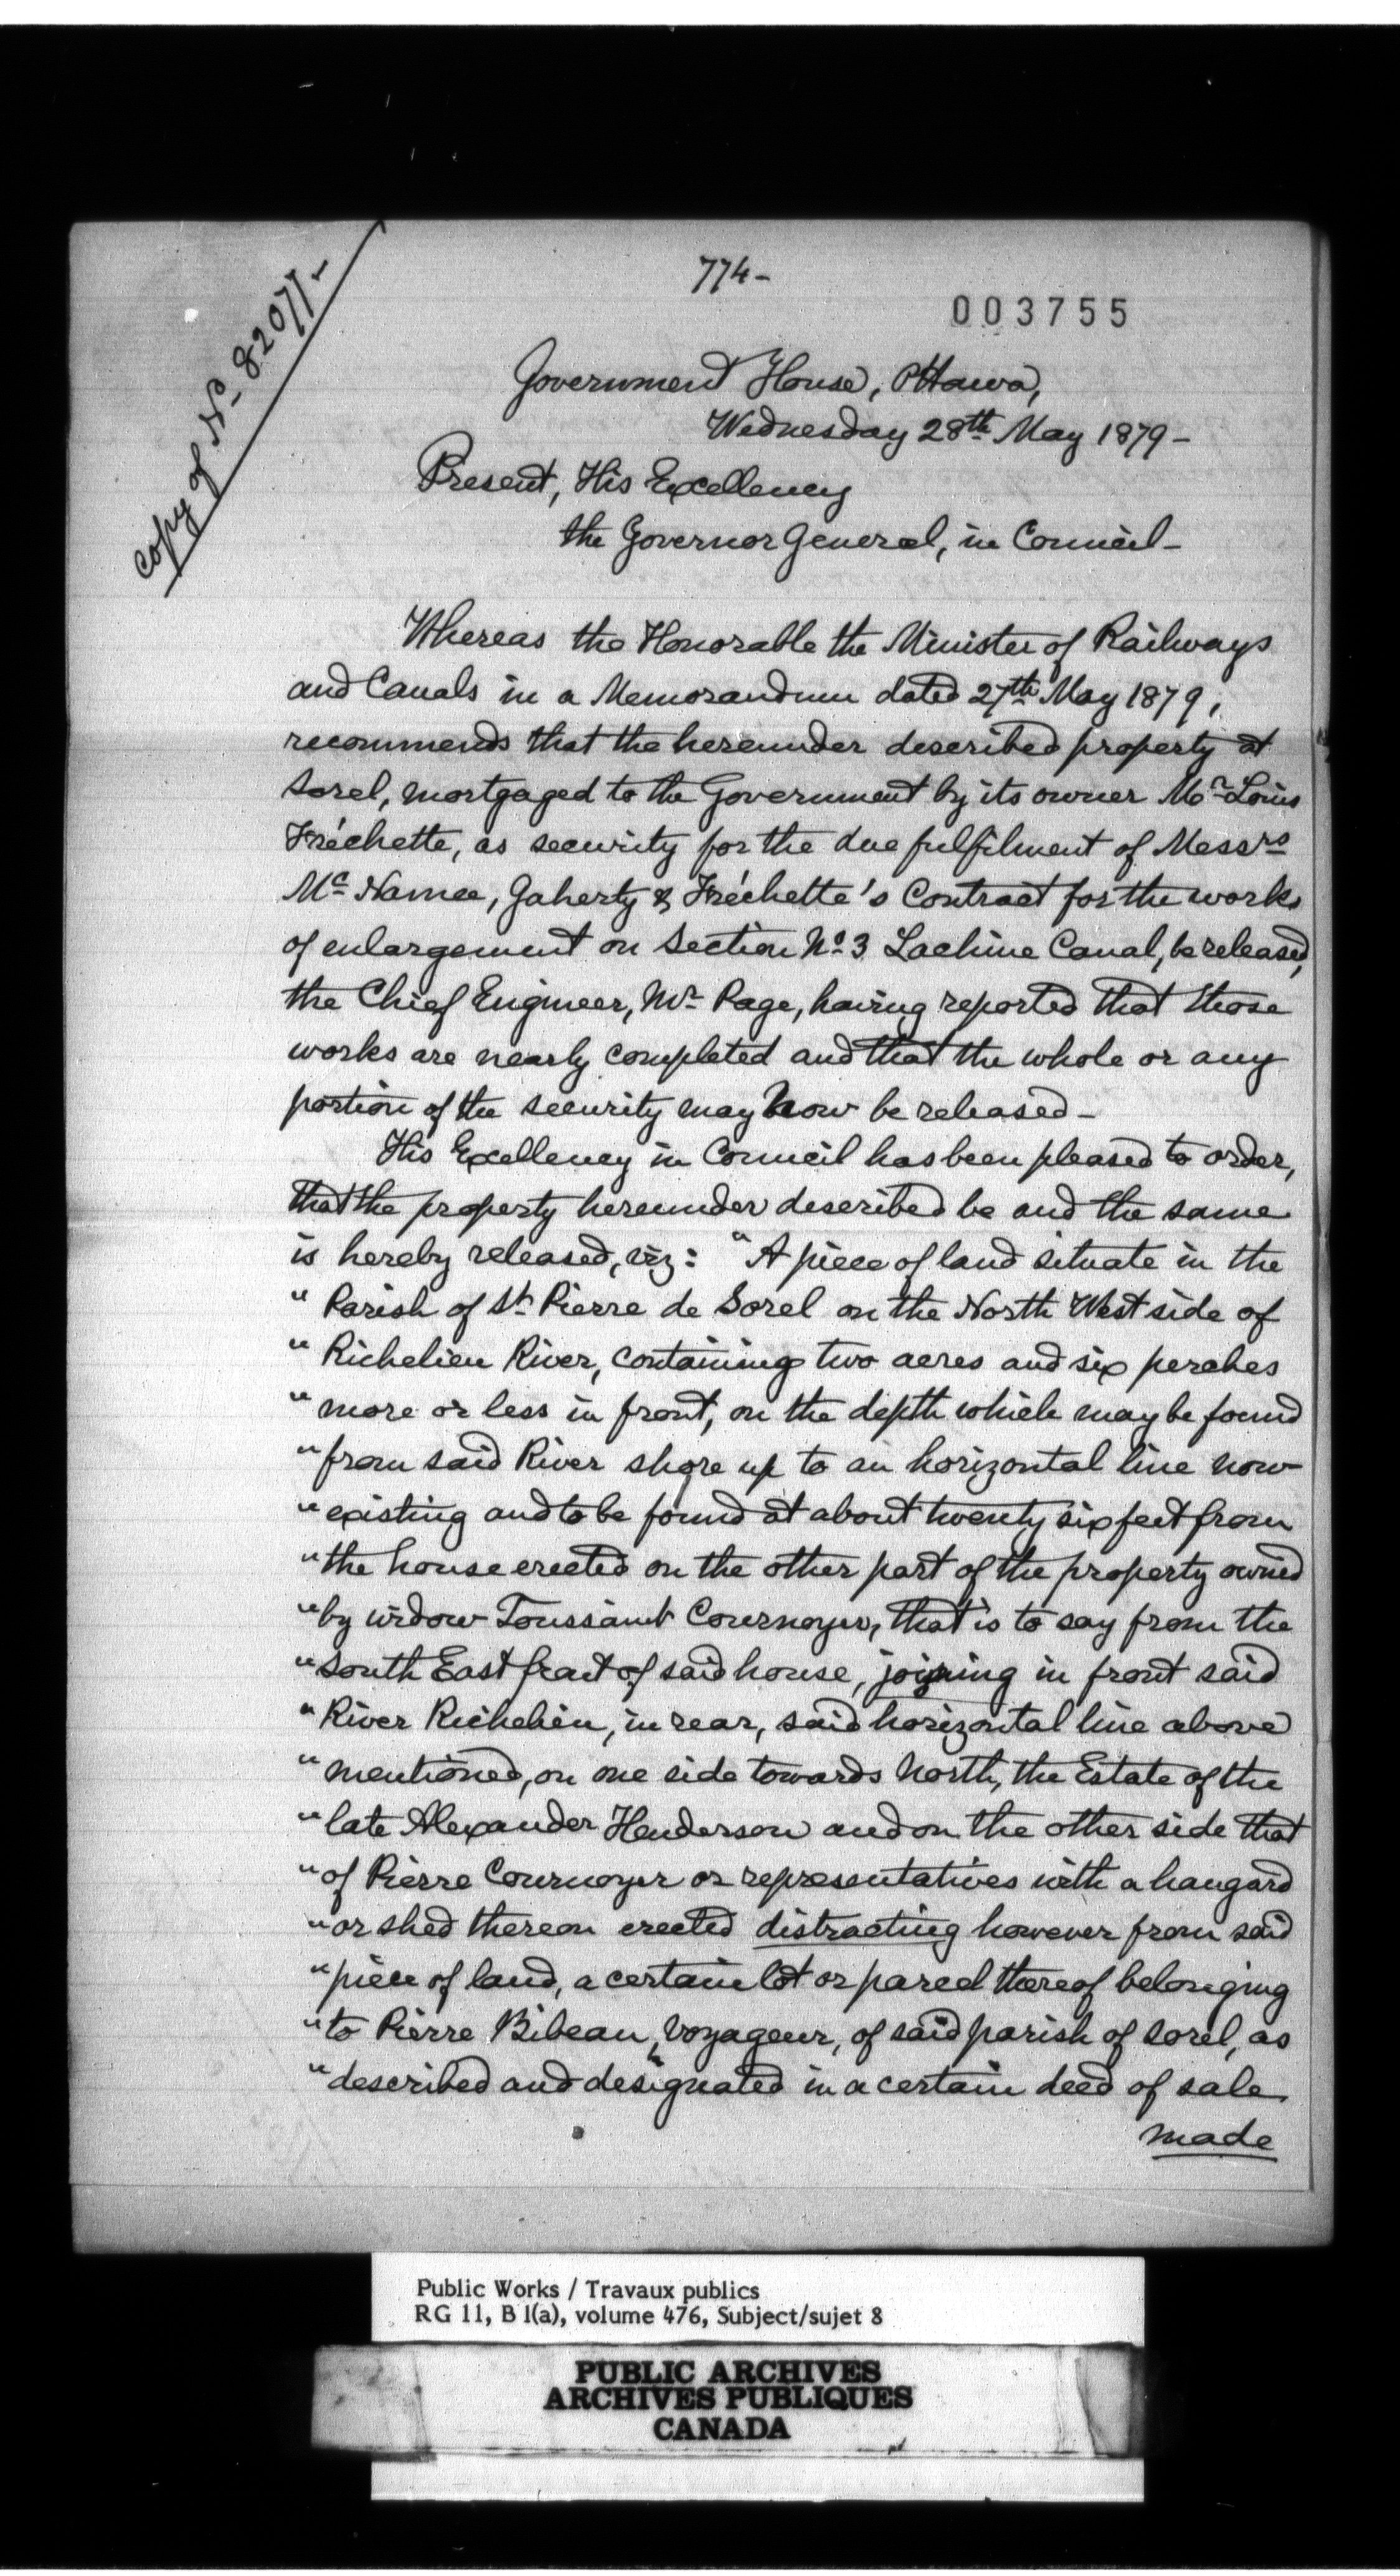 copy of No 82071-
774-
003755
Government House, Ottawa,
Wednesday 28th May 1879-
Present, His Excellency
the Governor General, in Council-
Whereas the Honorable the Minister of Railways
and Canals in a Memorandum dated 27th May 1879,
recommends that the hereunder described property at
Sorel, mortgaged to the Government by its owner Mr Louis
Fréchette, as security for the due fulfilment of Messrs
Mc Namee, Gaherty & Fréchette's Contract for the works
of enlargement on Section No 3 Lachine Canal, be released,
the Chief Engineer, Mr Page, having reported that those
works are nearly completed and that the whole or any
portion of the security may now be released-
His Excellency in Council has been pleased to order,
that the property hereunder described be and the same
is hereby released, viz: "A piece of land situate in the
" Parish of St Pierre de Sorel on the North West side of
" Richelieu River, containing two acres and six perches
" more or less in front, on the depth which may be found
" from said River shore up to an horizontal line now
" existing and to be found at about twenty six feet from
" the house erected on the other part of the property owned
" by widow Toussaint Cournoyer, that is to say from the
" South East front of said house, joining in front said
" River Richelieu, in rear, said horizontal line above
" mentioned, on one side towards North, the Estate of the
" late Alexander Henderson and on the other side that
" of Pierre Cournoyer or representatives with a hangard
" or shed thereon erected distracting however from said
" piece of land, a certain lot or parcel thereof belonging
" to Pierre Bibeau, Voyageur, of said parish of Sorel, as
" described and designated in a certain deed of sale
made
Public Works / Travaux publics
RG 11, B 1(a), volume 476, Subject/sujet 8
PUBLIC ARCHIVES
ARCHIVES PUBLIQUES
CANADA